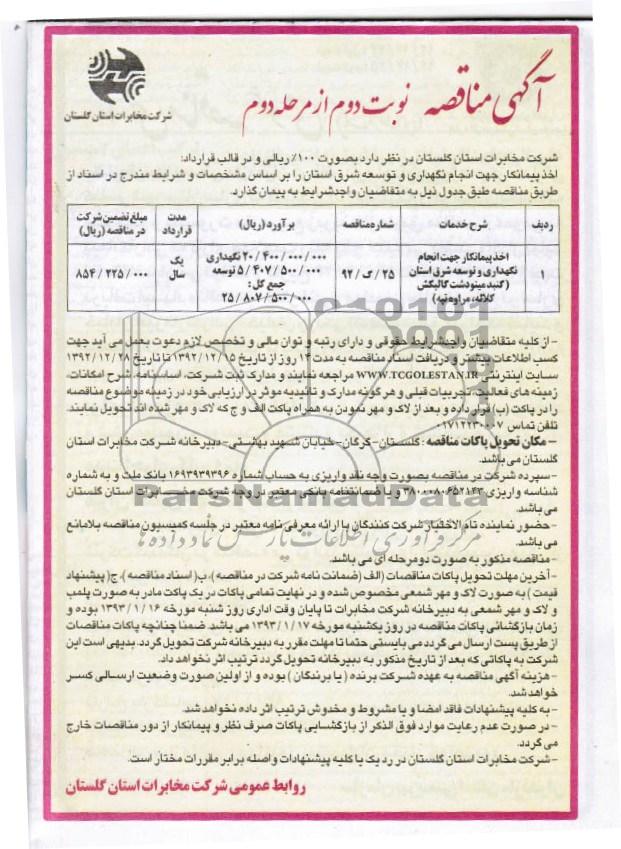 آگهی مناقصه نوبت دوم از مرحله دوم
شرکت مخابرات استان گلستان
شرکت مخابرات استان گلستان در نظر دارد بصورت ۱۰۰٪ ریالی و در قالب قرارداد:
اخذ پیمانکار جهت انجام نگهداری و توسعه شرق استان را بر اساس مشخصات و شرایط مندرج در اسناد از
طریق مناقصه طبق جدول ذیل به متقاضیان واجدشرایط به پیمان گذارد.
ردیف شرح خدمات شماره مناقصه برآورد (ریال) مدت قرارداد مبلغ تضمین شرکت در مناقصه (ریال)
۱ اخذ پیمانکار جهت انجام نگهداری و توسعه شرق استان (گنبد مینودشت گالیکش کلاله، مراوه تپه) ۲۵/گ/۹۲ ۲۰/۴۰۰/۰۰۰/۰۰۰ نگهداری ۵/۴۰۷/۵۰۰/۰۰۰ توسعه جمع کل: ۲۵/۸۰۷/۵۰۰/۰۰۰ یک سال ۸۵۴/۲۲۵/۰۰۰
- از کلیه متقاضیان واجدشرایط حقوقی و دارای رتبه و توان مالی و تخصصی لازم دعوت بعمل می آید جهت
کسب اطلاعات بیشتر و دریافت اسناد مناقصه به مدت ۱۴ روز از تاریخ ۱۳۹۲/۱۲/۱۵ تا تاریخ ۱۳۹۲/۱۲/۲۸ به
سایت اینترنتی WWW.TCGOLESTAN.IR مراجعه نمایند و مدارک ثبت شرکت، اساسنامه، شرح امکانات،
زمینه های فعالیت، تجربیات قبلی و هر گونه مدارک و تائیدیه موثر در ارزیابی خود در زمینه موضوع مناقصه
را در پاکت (ب) قرار داده و بعد از لاک و مهر نمودن به همراه پاکت الف و ج که لاک و مهر شده اند تحویل نمایند.
تلفن تماس ۰۱۷۱۲۲۳۰۰۰۷
- مکان تحویل پاکات مناقصه: گلستان- گرگان- خیابان شهید بهشتی- دبیرخانه شرکت مخابرات استان
گلستان می باشد.
- سپرده شرکت در مناقصه بصورت وجه نقد واریزی به حساب شماره ۱۶۹۳۹۳۹۳۹۶ بانک ملت و به شماره
شناسه واریزی ۳۸۰۰۰۸۰۶۵۲۱۴۳ و یا ضمانتنامه بانکی معتبر در وجه شرکت مخابرات استان گلستان
می باشد.
- حضور نماینده تام الاختیار شرکت کنندگان با ارائه معرفی نامه معتبر در جلسه کمیسیون مناقصه بلامانع
می باشد.
- مناقصه مذکور به صورت دو مرحله ای می باشد.
- آخرین مهلت تحویل پاکات مناقصات (الف (ضمانت نامه شرکت در مناقصه)، ب( اسناد مناقصه )، ج( پیشنهاد
قیمت ) به صورت لاک و مهر شمعی مخصوص شده و در نهایت تمامی پاکات در یک پاکت مادر به صورت پلمپ
و لاک و مهر شمعی به دبیرخانه شرکت مخابرات تا پایان وقت اداری روز شنبه مورخه ۱۳۹۳/۱/۱۶ بوده و
زمان بازگشائی پاکات مناقصه در روز یکشنبه مورخه ۱۳۹۳/۱/۱۷ می باشد. ضمنا چنانچه پاکات مناقصات
از طریق پست ارسال می گردد می بایستی حتما تا مهلت مقرر به دبیرخانه شرکت تحویل گردد. بدیهی است این
شرکت به پاکاتی که بعد از تاریخ مذکور به دبیرخانه تحویل گردد ترتیب اثر نخواهد داد.
- هزینه آگهی مناقصه به عهده شرکت برنده ( یا برندگان ) بوده و از اولین صورت وضعیت ارسالی کسر
خواهد شد.
- به کلیه پیشنهادات فاقد امضا و یا مشروط و مخدوش ترتیب اثر داده نخواهد شد.
- در صورت عدم رعایت موارد فوق الذکر از بازگشایی پاکات صرف نظر و پیمانکار از دور مناقصات خارج
می گردد.
- شرکت مخابرات استان گلستان در رد یک یا کلیه پیشنهادات واصله برابر مقررات مختار است.
روابط عمومی شرکت مخابرات استان گلستان
ParsNamadData
مرکز فرآوری اطلاعات پارس نماد داده ها